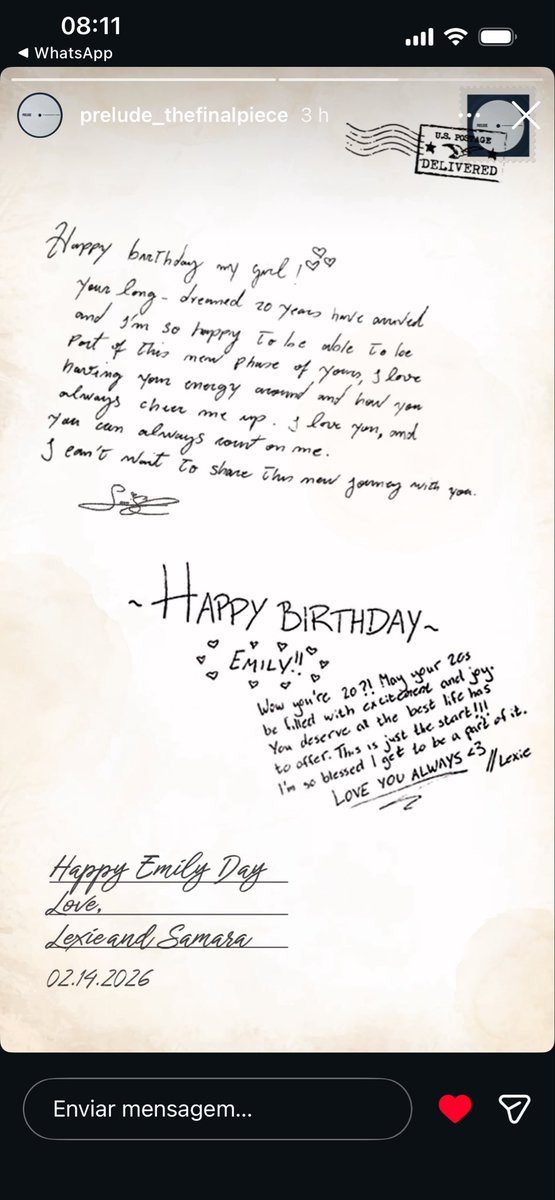 08:11
WhatsApp
prelude_thefinalpiece 3 h
U.S. POSTAGE
DELIVERED
Happy birthday my girl!
Your long-dreamed 20 years have arrived
and I'm so happy to be able to be
part of this new phase of yours, I love
having your energy around and how you
always cheer me up. I love you, and
you can always count on me.
I can't wait to share this new journey with you.
~HAPPY BIRTHDAY~
EMILY!!
Wow you're 20?! May your 20s
be filled with excitement and joy.
You deserve all the best life has
to offer. This is just the start!!!
I'm so blessed I get to be a part of it.
LOVE YOU ALWAYS <3 //Lexie
Happy Emily Day
Love,
Lexie and Samara
02.14.2026
Enviar mensagem...